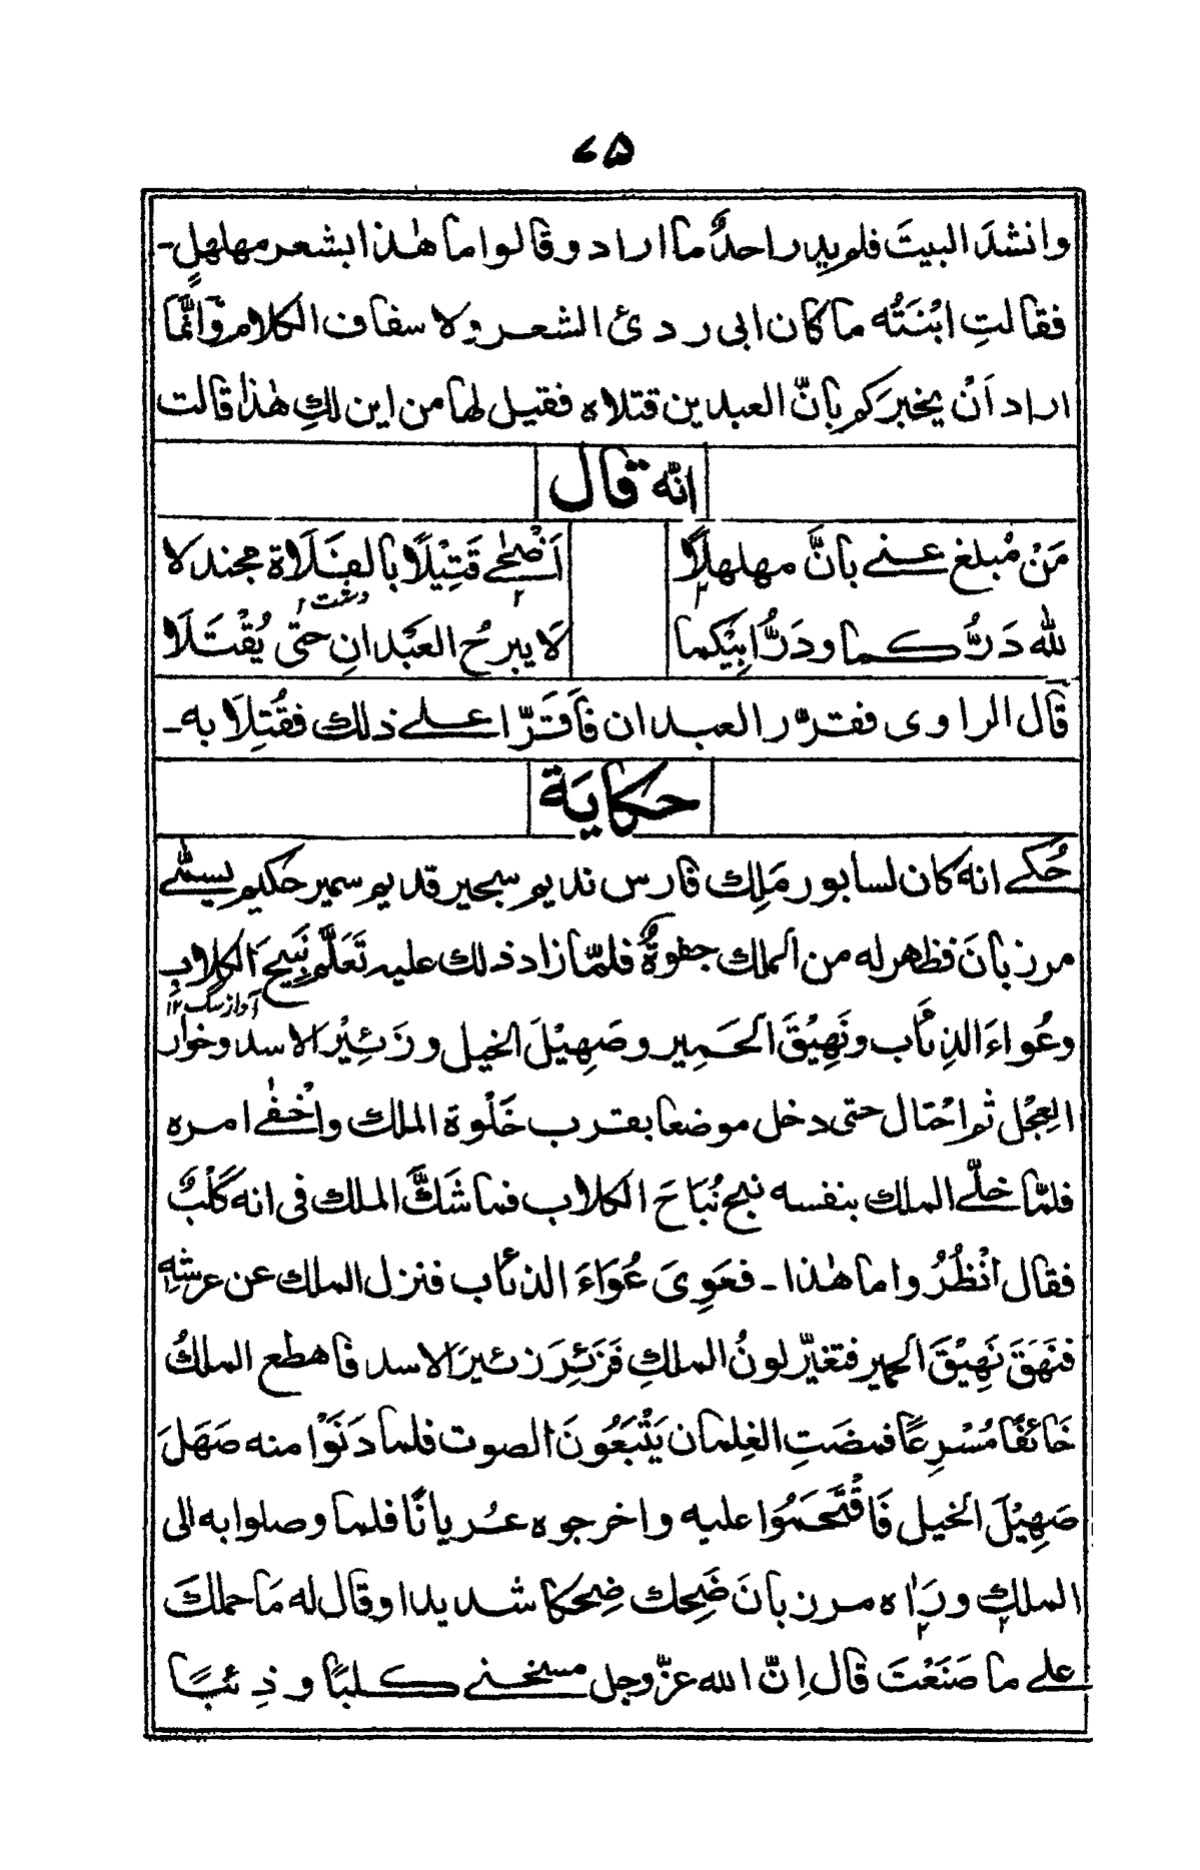 ۷۵
وانشدَ البيتَ فلم يدر احدٌ ما اراد وقالوا ما هٰذا بشعر مهلهلٍ۔
فقالتِ ابْنَتُه ما كان ابى ردئ الشعر ولا سفاف الكلام وَّانَّمَا
اراد اَنْ يخبرَكم بانَّ العبدين قتلاه فقيل لها من اين لكِ هٰذا قالت
انّه قال
مَنْ مُبلغ عنى بانَّ مهلهلًا
اَضْحٰى قَتِيْلًا بالفَلَاة مجندلا
۲
۲
دشت ۲
للّٰه دَرُّكما ودَرُّ ابِيْكما
لَا يبرحُ العَبْدانِ حتى يُقْتَلَا
قال الراوى فقرّر العبدان فاَقَرَّا على ذلك فقُتِلَا به۔
حكاية
حُكى انه كان لسابور مَلِك فارس نديم سجير قديم سمير حكيم يسمّٰى
مرزبانَ فظهر له من الملك جفوةٌ فلمّا زاد ذلك عليه تَعَلَّم نَبِيحَ الكلابِ
آواز سگ ۱۲
وعُواءَ الذِئاب ونَهِيْقَ الحَمِير وصَهِيْلَ الخيل وزَئِيْرَ الاسد وخوار
العِجْل ثم احْتال حتى دخل موضعا بقرب خَلْوة الملك واَخْفٰى امره
فلمّا خلّى الملك بنفسه نبح نُبَاحَ الكلاب فما شَكَّ الملك فى انه كَلْبٌ
فقال انْظُرُوا ما هٰذا۔ فعَوِىَ عُوَاءَ الذئاب فنزل الملك عن عرشهٖ
فنَهَقَ نَهِيْقَ الحمير فتغيّر لونُ الملكِ فَزَئِرَ زئيرَ الاسد فاهطع الملكُ
خَائفًا مُسْرِعًا فمضَتِ الغِلمان يَتْبَعُونَ الصوت فلما دَنَوْا منه صَهَلَ
صَهِيْلَ الخيل فَاقْتَحَمُوا عليه واخرجوه عُريانًا فلما وصلوا به الى
الملك ورَاٰه مرزبانَ ضَحِك ضِحكا شديدا وقال له مَا حملك
۲
۲
على ما صَنَعْتَ قال اِنَّ اللّٰه عزّ وجل مسخنى كلبًا وذِئبًا